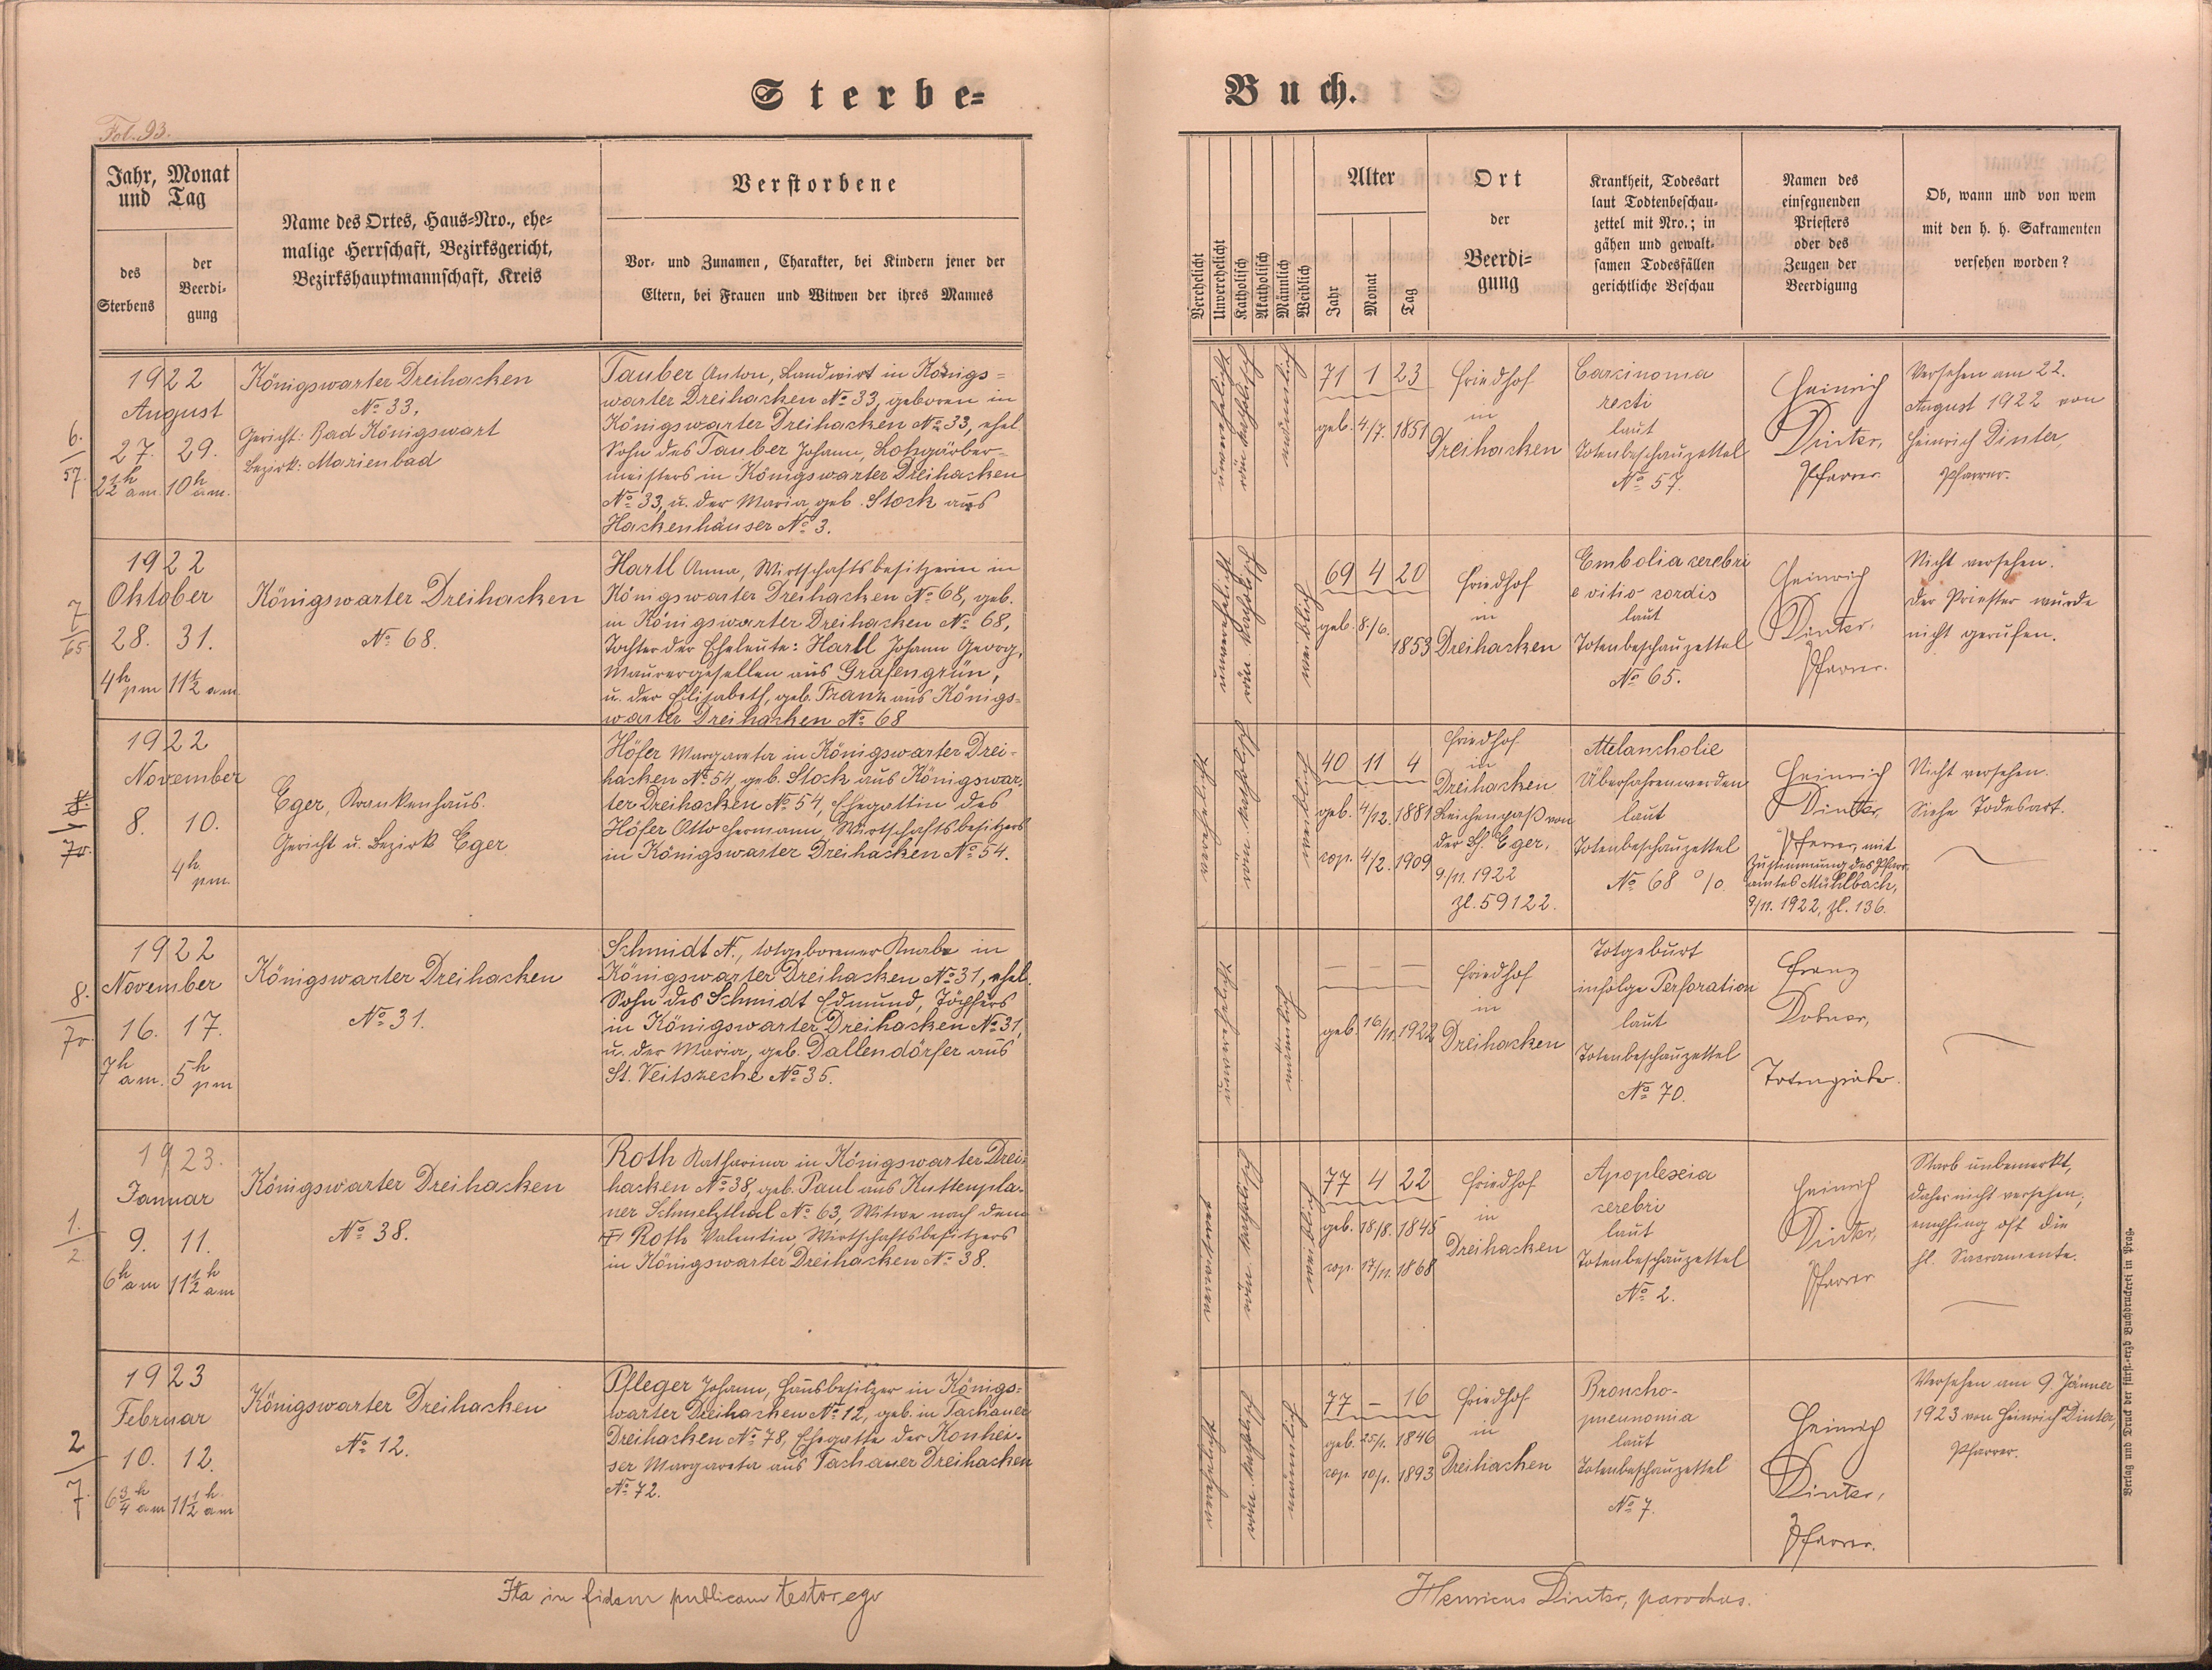 Sterbe=
Buch.
Fol. 93.
Jahr, Monat
und Tag
des
Sterbens
der
Beerdi=
gung
Name des Ortes, Haus=Nro., ehe=
malige Herrschaft, Bezirksgericht,
Bezirkshauptmannschaft, Kreis
Verstorbene
Vor= und Zunamen, Charakter, bei Kindern jener der
Eltern, bei Frauen und Witwen der ihres Mannes
Verehelicht
Unverehelicht
Katholisch
Akatholisch
Männlich
Weiblich
Alter
Jahr
Monat
Tag
Ort
der
Beerdi=
gung
Krankheit, Todesart
laut Todtenbeschau=
zettel mit Nro.; in
gähen und gewalt=
samen Todesfällen
gerichtliche Beschau
Namen des
einsegnenden
Priesters
oder des
Zeugen der
Beerdigung
Ob, wann und von wem
mit den h. h. Sakramenten
versehen worden?
6.
57.
1922
August
27. 29.
2½h am. 10h am.
Königswarter Dreihacken
No 33.
Gericht: Bad Königswart
Bezirk: Marienbad
Tauber Anton, Landwirt in Königs=
warter Dreihacken No 33, geboren in
Königswarter Dreihacken No 33, ehel.
Sohn des Tauber Johann, Lohgärber=
meisters in Königswarter Dreihacken
No 33, u. der Maria, geb. Stock aus
Hackenhäuser No 3.
unverehelicht
röm. katholisch
männlich
71 1 23
geb. 4/7. 1851
Friedhof
in
Dreihacken
Carcinoma
recti
laut
Totenbeschauzettel
No 57.
Heinrich
Dinter,
Pfarrer.
Versehen am 22.
August 1922 von
Heinrich Dinter,
Pfarrer.
7
65
1922
Oktober
28. 31.
4h pm 11½ am
Königswarter Dreihacken
No 68.
Hartl Anna, Wirtschaftsbesitzerin in
Königswarter Dreihacken No 68, geb.
in Königswarter Dreihacken No 68,
Tochter der Eheleute: Hartl Johann Georg,
Maurergesellen aus Grafengrün,
u. der Elisabeth, geb. Franz aus Königs=
warter Dreihacken No 68
unverehelicht
röm. katholisch
weiblich
69 4 20
geb. 8/6. 1853
Friedhof
in
Dreihacken
Embolia cerebri
e vitio cordis
laut
Totenbeschauzettel
No 65.
Heinrich
Dinter,
Pfarrer.
Nicht versehen.
Der Priester wurde
nicht gerufen.
8.
70.
1922
November
8. 10.
4h pm.
Eger, Krankenhaus.
Gericht u. Bezirk Eger
Höfer Margareta in Königswarter Drei=
hacken No 54 geb. Stock aus Königswar=
ter Dreihacken No 54, Ehegattin des
Höfer Otto Hermann, Wirtschaftsbesitzers
in Königswarter Dreihacken No 54.
verehelicht
röm. katholisch
weiblich
40 11 4
geb. 4/12. 1881
cop. 4/2. 1909
Friedhof
in
Dreihacken
Leichenpaß von
der Eger,
9/11. 1922
Zl. 59122.
Melancholie
Überfahrenwerden
laut
Totenbeschauzettel
No 68
Heinrich
Dinter,
Pfarrer, mit
Zustimmung des Pfarr=
amtes Mühlbach,
9/11. 1922, Zl. 136.
Nicht versehen.
Siehe Todesart.
8.
70.
1922
November
16. 17.
7h am. 5h pm
Königswarter Dreihacken
No 31.
Schmidt N., totgeborener Knabe in
Königswarter Dreihacken No 31, ehel.
Sohn des Schmidt Edmund, Töpfers
in Königswarter Dreihacken No 31,
u. der Maria, geb. Dallendörfer aus
St. Veitszeche No 35.
unverehelicht
männlich
— — —
geb. 16/11. 1922
Friedhof
in
Dreihacken
Totgeburt
infolge Perforation
laut
Totenbeschauzettel
No 70.
Franz
Dobner,
Totengräber.
1.
2
1923.
Januar
9. 11.
6h am 11½h am
Königswarter Dreihacken
No 38.
Roth Katharina in Königswarter Drei=
hacken No 38, geb. Paul aus Kuttenpla=
ner Schmelzthal No 63, Witwe nach dem
† Roth Valentin, Wirtschaftsbesitzers
in Königswarter Dreihacken No 38.
verwitwet
röm. katholisch
weiblich
77 4 22
geb. 18/8. 1845
cop. 17/11. 1868
Friedhof
in
Dreihacken
Apoplexia
cerebri
laut
Totenbeschauzettel
No 2.
Heinrich
Dinter,
Pfarrer
Starb unbemerkt,
daher nicht versehen;
empfing oft die
hl. Sacramente.
2
7.
1923
Februar
10. 12.
6¾h am 11½h am
Königswarter Dreihacken
No 12.
Pfleger Johann, Hausbesitzer in Königs=
warter Dreihacken No 12, geb. in Tachauer
Dreihacken No 78, Ehegatte der Konhei=
ser Margareta aus Tachauer Dreihacken
No 72.
verehelicht
röm. kathol.
männlich
77 — 16
geb. 25/1. 1846
cop. 10/1. 1893
Friedhof
in
Dreihacken
Broncho-
pneunomia
laut
Totenbeschauzettel
No 7.
Heinrich
Dinter,
Pfarrer.
Versehen am 9. Jänner
1923 von Heinrich Dinter,
Pfarrer.
Ita in fidem publicam testor ego
Henricus Dinter, parochus.
Verlag und Druck der fürst.=erzb. Buchdruckerei in Prag.